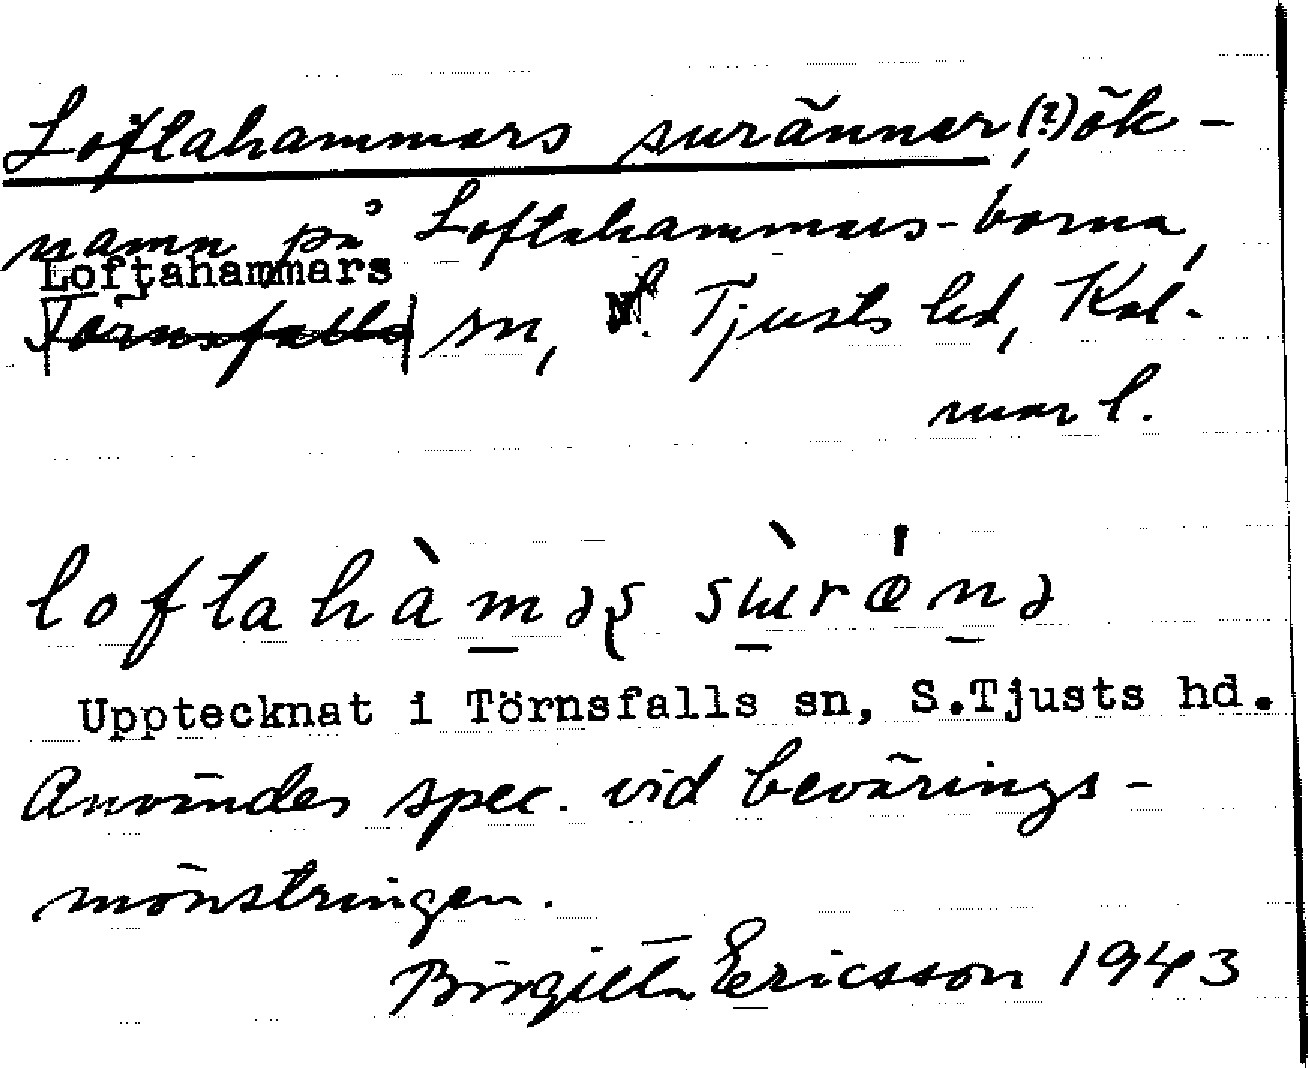 Loftahammars suränner (?), ök-
namn på Loftahammars-borna,
Loftahammars
Törnsfalls sn, N. Tjusts hd, Kal-
mar l.
loftahàmas sùrǽna
Upptecknat i Törnsfalls sn, S.Tjusts hd.
Användes spec. vid bevärings-
mönstringen.
Birgitta Ericsson 1943